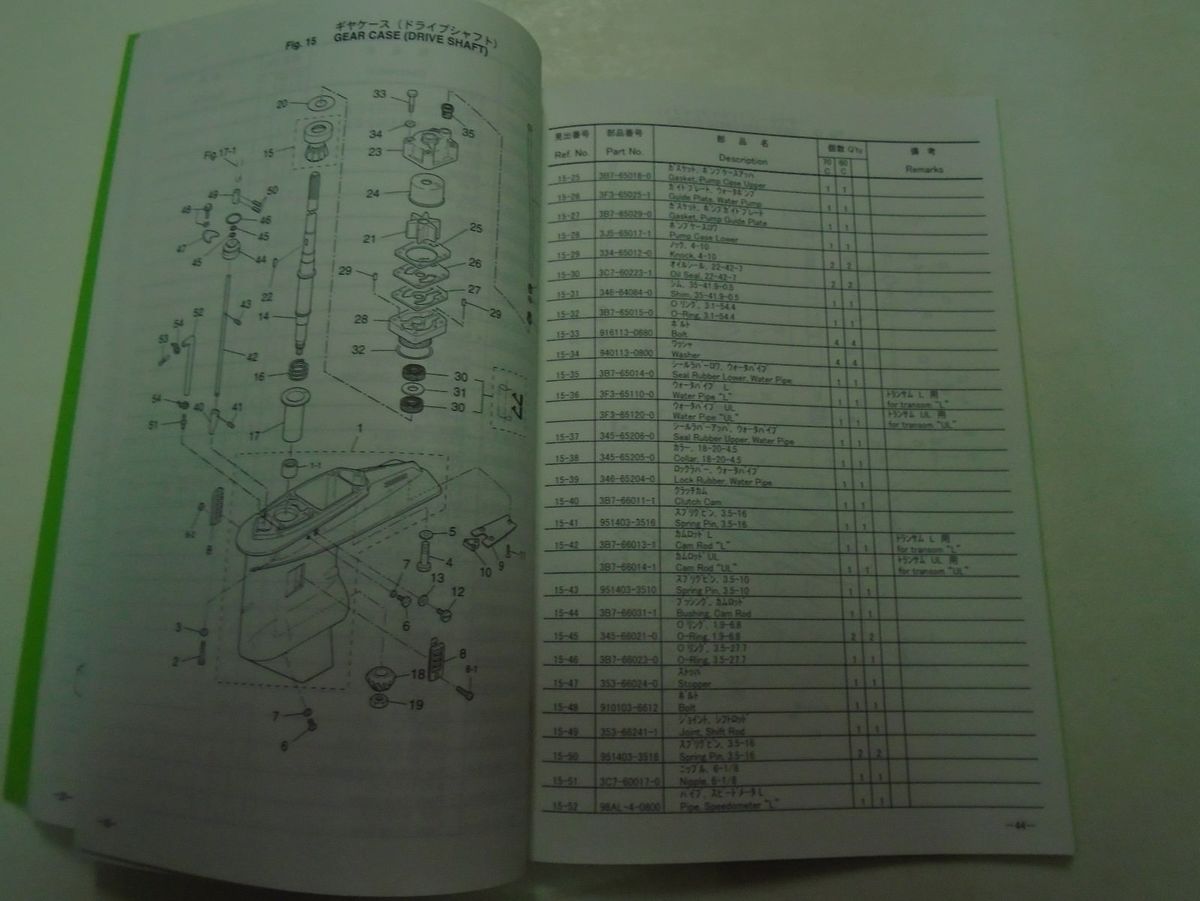 ギヤケース (ドライブシャフト)
Fig. 15 GEAR CASE (DRIVE SHAFT)
20
33
35
34
23
15
Fig.17-1
24
49
50
48
46
25
21
45
47
26
45
44
29
27
22
43
29
52
14
28
54
53
42
32
16
30
31
30
54
41
51
17
1
1-1
5
4
9
10
7
13
12
6
3
2
8
18
19
7
6
見出番号 部品番号 部 品 名 個数 Q'ty 備 考
Ref. No. Part No. Description 70 C 60 C Remarks
ガスケット, ポンプケースアッパ
15-25 3B7-65018-0 Gasket, Pump Case Upper 1 1
ガイドプレート, ウォータポンプ
15-26 3F3-65025-1 Guide Plate, Water Pump 1 1
ガスケット, ポンプガイドプレート
15-27 3B7-65029-0 Gasket, Pump Guide Plate 1 1
ポンプケースロワ
15-28 3J5-65017-1 Pump Case Lower 1 1
ノック, 4-10
15-29 334-65012-0 Knock, 4-10 2 2
オイルシール, 22-42-7
15-30 3C7-60223-1 Oil Seal, 22-42-7 2 2
シム, 35-41.9-0.5
15-31 346-64084-0 Shim, 35-41.9-0.5 1 1
Oリング, 3.1-54.4
15-32 3B7-65015-0 O-Ring, 3.1-54.4 1 1
ボルト
15-33 916113-0880 Bolt 4 4
ワッシャ
15-34 940113-0800 Washer 4 4
シールラバーロワ, ウォータパイプ
15-35 3B7-65014-0 Seal Rubber Lower, Water Pipe 1 1
ウォータパイプ L トランサム L 用
15-36 3F3-65110-0 Water Pipe "L" 1 1 for transom "L"
ウォータパイプ UL トランサム UL 用
3F3-65120-0 Water Pipe "UL" 1 1 for transom "UL"
シールラバーアッパ, ウォータパイプ
15-37 345-65206-0 Seal Rubber Upper, Water Pipe 1 1
カラー, 18-20-4.5
15-38 345-65205-0 Collar, 18-20-4.5 1 1
ロックラバー, ウォータパイプ
15-39 346-65204-0 Lock Rubber, Water Pipe 1 1
クラッチカム
15-40 3B7-66011-1 Clutch Cam 1 1
スプリングピン, 3.5-16
15-41 951403-3516 Spring Pin, 3.5-16 1 1
カムロッド L トランサム L 用
15-42 3B7-66013-1 Cam Rod "L" 1 1 for transom "L"
カムロッド UL トランサム UL 用
3B7-66014-1 Cam Rod "UL" 1 1 for transom "UL"
スプリングピン, 3.5-10
15-43 951403-3510 Spring Pin, 3.5-10 1 1
ブッシング, カムロッド
15-44 3B7-66031-1 Bushing, Cam Rod 1 1
Oリング, 1.9-6.8
15-45 345-66021-0 O-Ring, 1.9-6.8 2 2
Oリング, 3.5-27.7
15-46 3B7-66023-0 O-Ring, 3.5-27.7 1 1
ストッパ
15-47 353-66024-0 Stopper 1 1
ボルト
15-48 910103-6612 Bolt 1 1
ジョイント, シフトロッド
15-49 353-66241-1 Joint, Shift Rod 1 1
スプリングピン, 3.5-16
15-50 951403-3516 Spring Pin, 3.5-16 2 2
ニップル, 6-1/8
15-51 3C7-60017-0 Nipple, 6-1/8 1 1
パイプ, スピードメータ L
15-52 98AL-4-0800 Pipe, Speedometer "L" 1 1
-44-